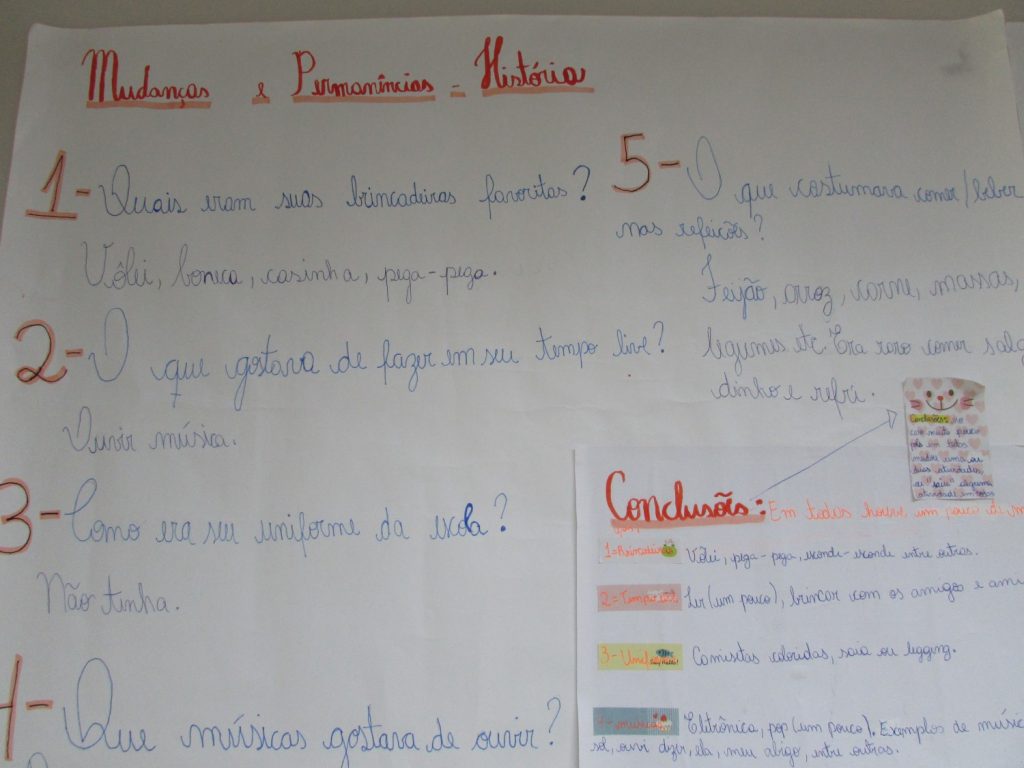 Mudanças e Permanências - História
1- Quais eram suas brincadeiras favoritas?
Vôlei, boneca, casinha, pega-pega.
2- O que gostava de fazer em seu tempo live?
Ouvir música.
3- Como era seu uniforme da escola?
Não tinha.
4- Que músicas gostava de ouvir?
5- O que costumava comer/beber
nas refeições?
Feijão, arroz, carne, massas,
legumes etc. Era raro comer salga
dinho e refri.
Conclusões: Em todos houve um pouco de
1=Brincadeiras Vôlei, pega-pega, esconde-esconde entre outras.
2= Ler (um pouco), brincar com os amigos e ami
3- Camisetas coloridas, saia ou legging.
4- músicas Eletrônica, pop (um pouco). Exemplos de músic
sol, ouvi dizer, ela, meu abrigo, entre outras.
Conclusões:
com muito pouco
pois em todos
mudou uma ou
duas atividades,
ou "saiu" alguma
atividade